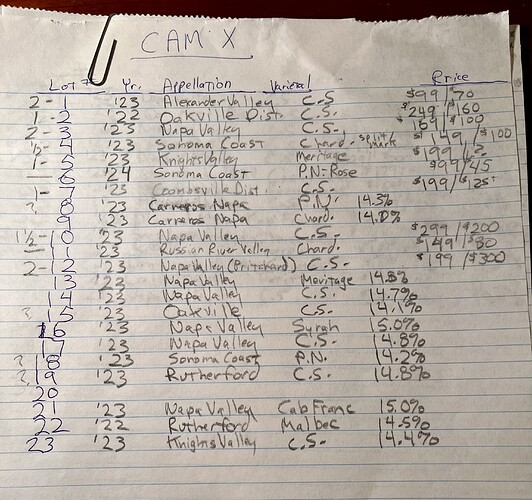 CAM X
Lot # Yr. Appellation Varietal Price
2- 1 '23 Alexander Valley C.S. $99/$70
1- 2 '22 Oakville Dist. C.S. $249/$160
2- 3 '23 Napa Valley C.S. $169/$100
½- 4 '23 Sonoma Coast Chard. split/ $149/$100
1- 5 '23 Knights Valley Meritage $199/
— 6 '24 Sonoma Coast P.N. Rose $99/45
1- 7 '23 Coombsville Dist. C.S. $199/$125
? 8 '23 Carneros Napa P.N. 14.3%
9 '23 Carneros Napa Chard. 14.0%
1½- 10 '23 Napa Valley C.S. $299/$200
— 11 '23 Russian River Valley Chard. $149/$80
2- 12 '23 Napa Valley (Pritchard) C.S. $199/$300
13 '23 Napa Valley Meritage 14.8%
14 '23 Napa Valley C.S. 14.7%
? 15 '23 Oakville C.S. 14.1%
16 '23 Napa Valley Syrah 15.0%
17 '23 Napa Valley C.S. 14.8%
? 18 '23 Sonoma Coast P.N. 14.2%
? 19 '23 Rutherford C.S. 14.8%
20
21 '23 Napa Valley Cab Franc 15.0%
22 '22 Rutherford Malbec 14.5%
23 '23 Knights Valley C.S. 14.4%